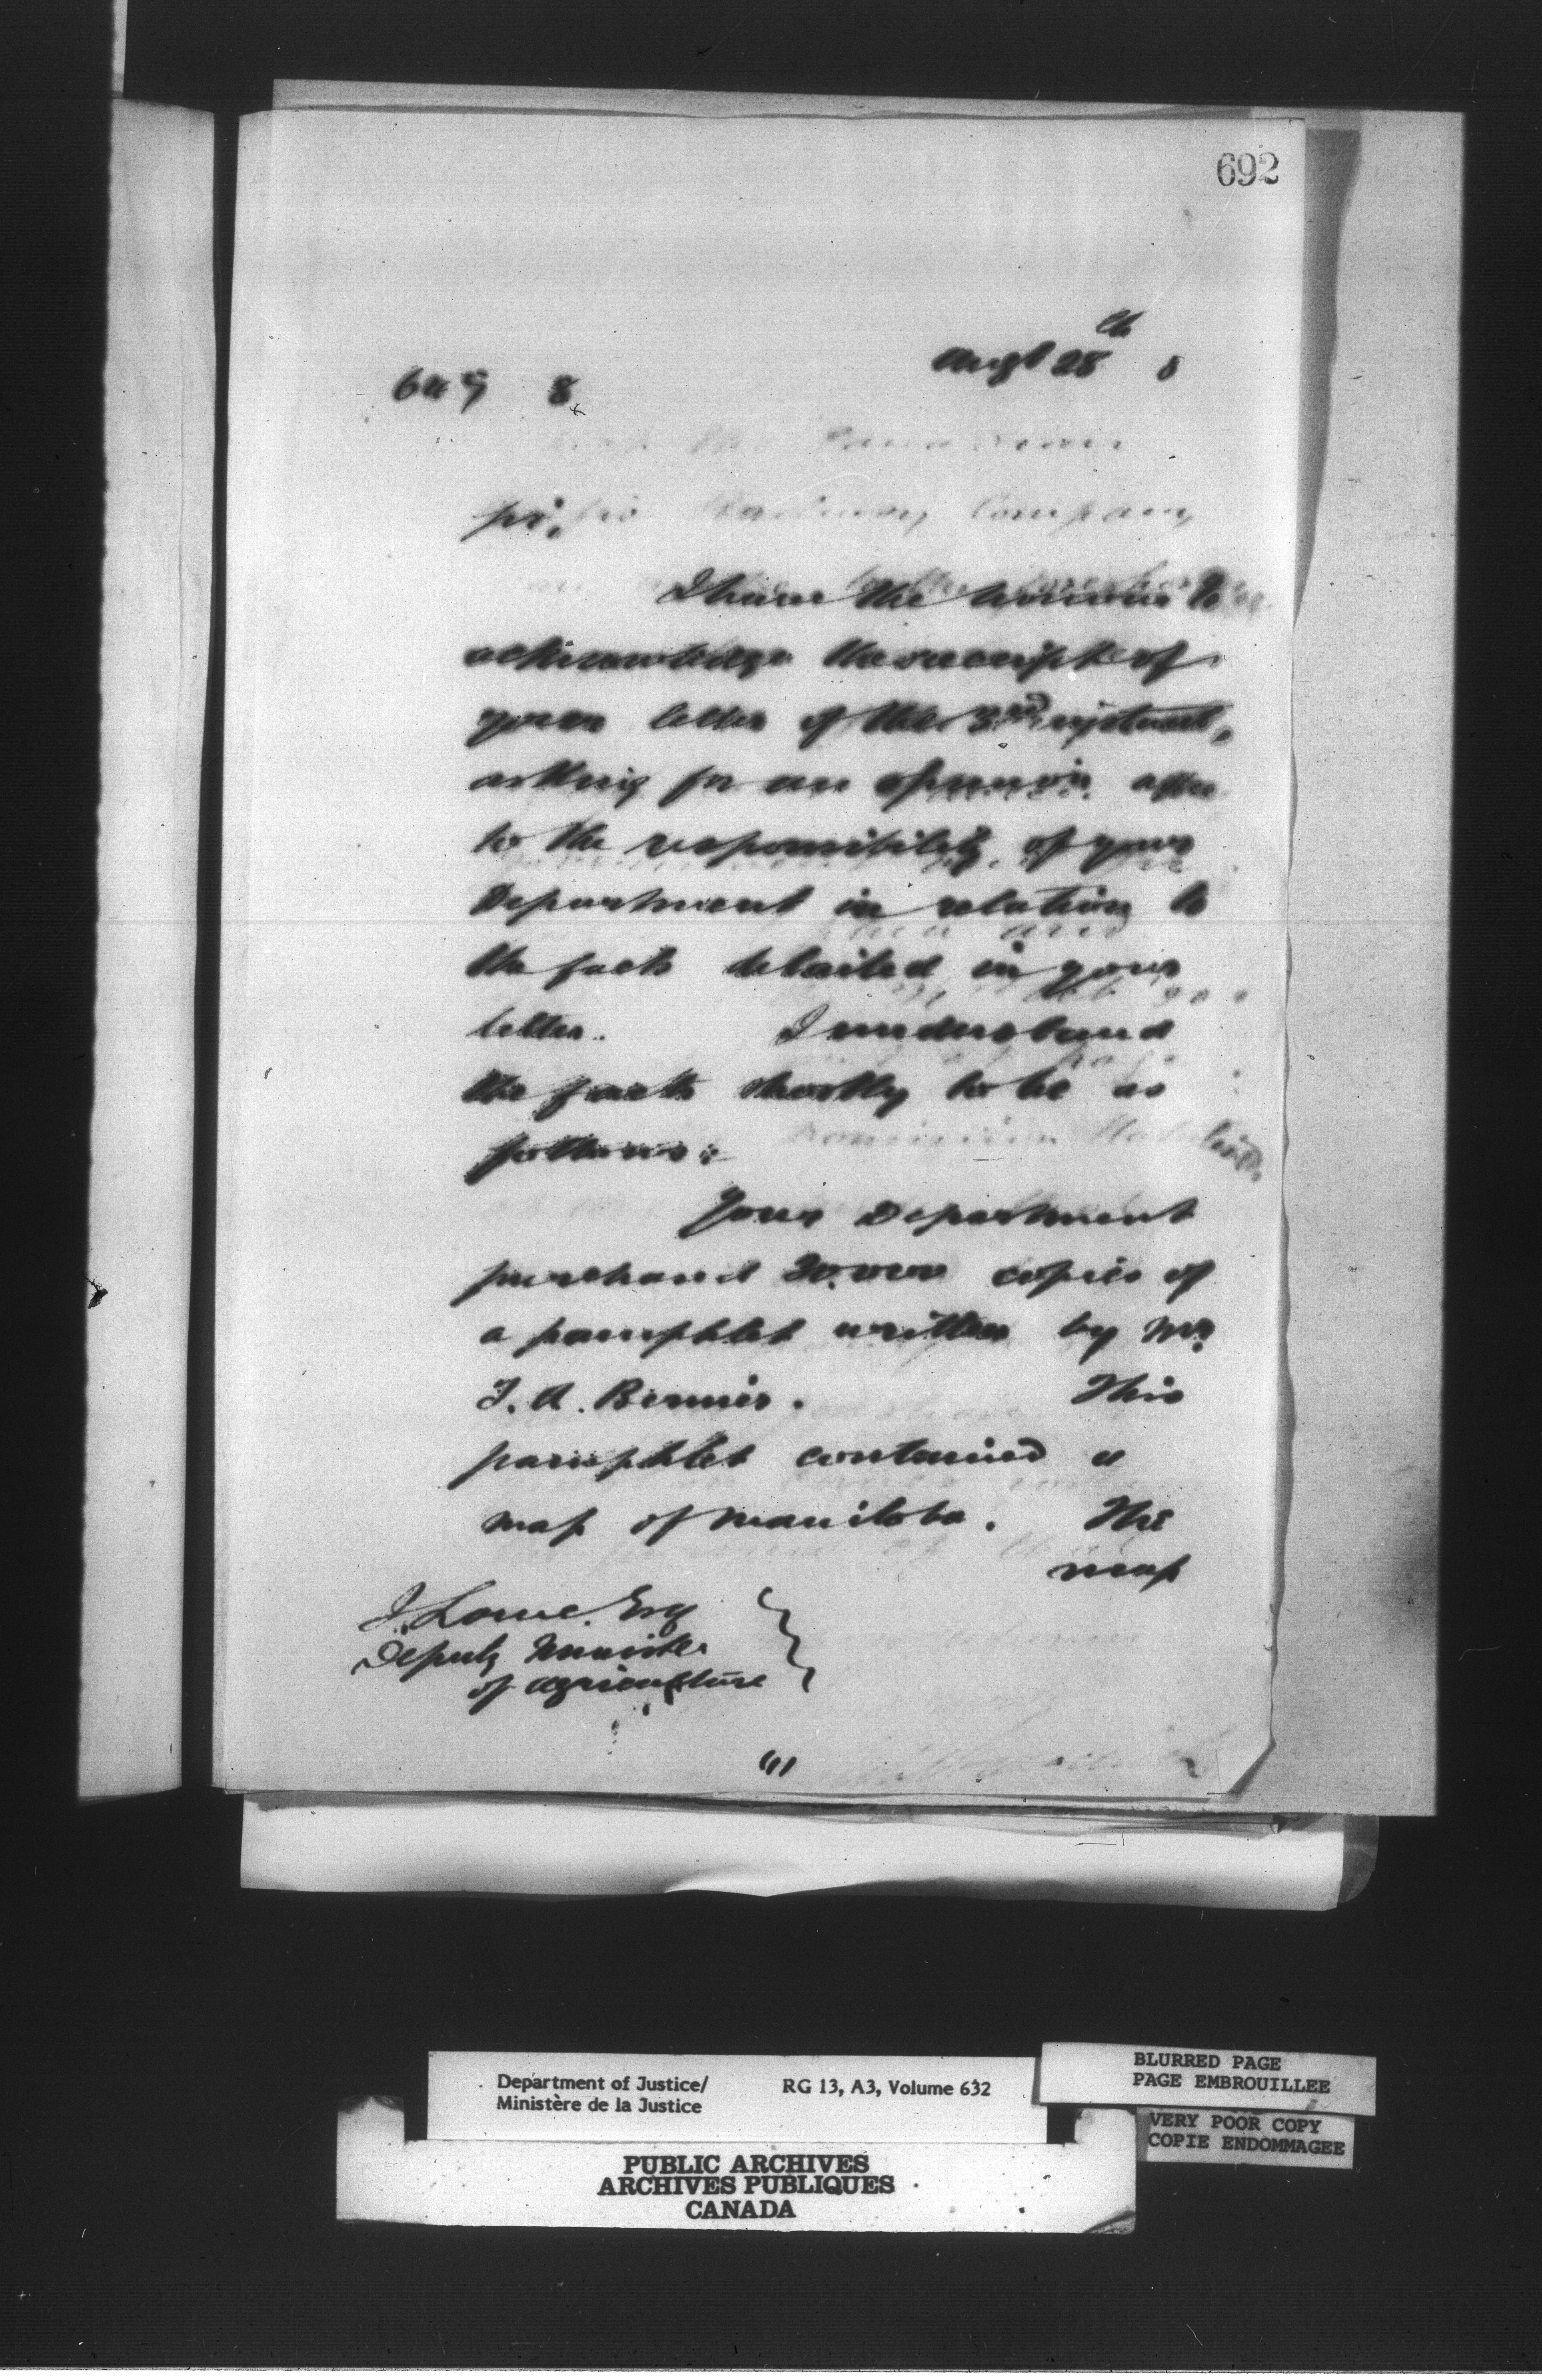 692
Augt 28th 8
649 8
Sir,
I have the honour to
acknowledge the receipt of
your letter of the 3rd instant,
asking for an opinion as
to the responsibility of your
Department in relation to
the facts detailed in your
letter. I understand
the facts shortly to be as
follows:
Your Department
purchased copies of
a pamphlet written by Mr.
T. A. Bernier. This
pamphlet contained a
map of Manitoba. The
map
J. Lowe Esq
Deputy Minister
of Agriculture
Department of Justice/ RG 13, A3, Volume 632
Ministère de la Justice
BLURRED PAGE
PAGE EMBROUILLEE
VERY POOR COPY
COPIE ENDOMMAGEE
PUBLIC ARCHIVES
ARCHIVES PUBLIQUES
CANADA